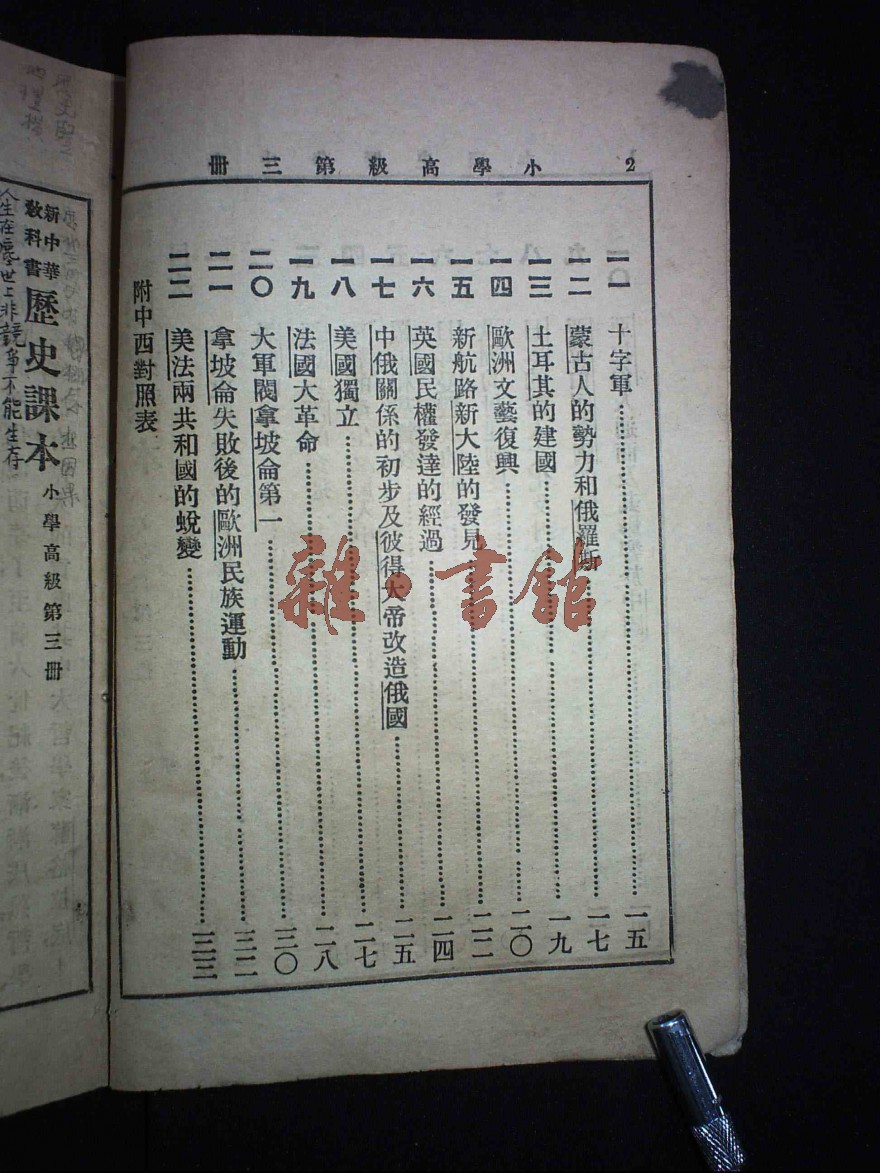 2 小學高級第三冊
一一 十字軍……一五
一二 蒙古人的勢力和俄羅斯……一七
一三 土耳其的建國……一九
一四 歐洲文藝復興……二〇
一五 新航路新大陸的發見……二二
一六 英國民權發達的經過……二四
一七 中俄關係的初步及彼得大帝改造俄國……二五
一八 美國獨立……二七
一九 法國大革命……二八
二〇 大軍閥拿坡侖第一……三〇
二一 拿坡侖失敗後的歐洲民族運動……三二
二二 美法兩共和國的蛻變……三三
附中西對照表
雜·書館
新中華
教科書
歷史課本 小學高級第三冊
人生在塵世上非競爭不能生存